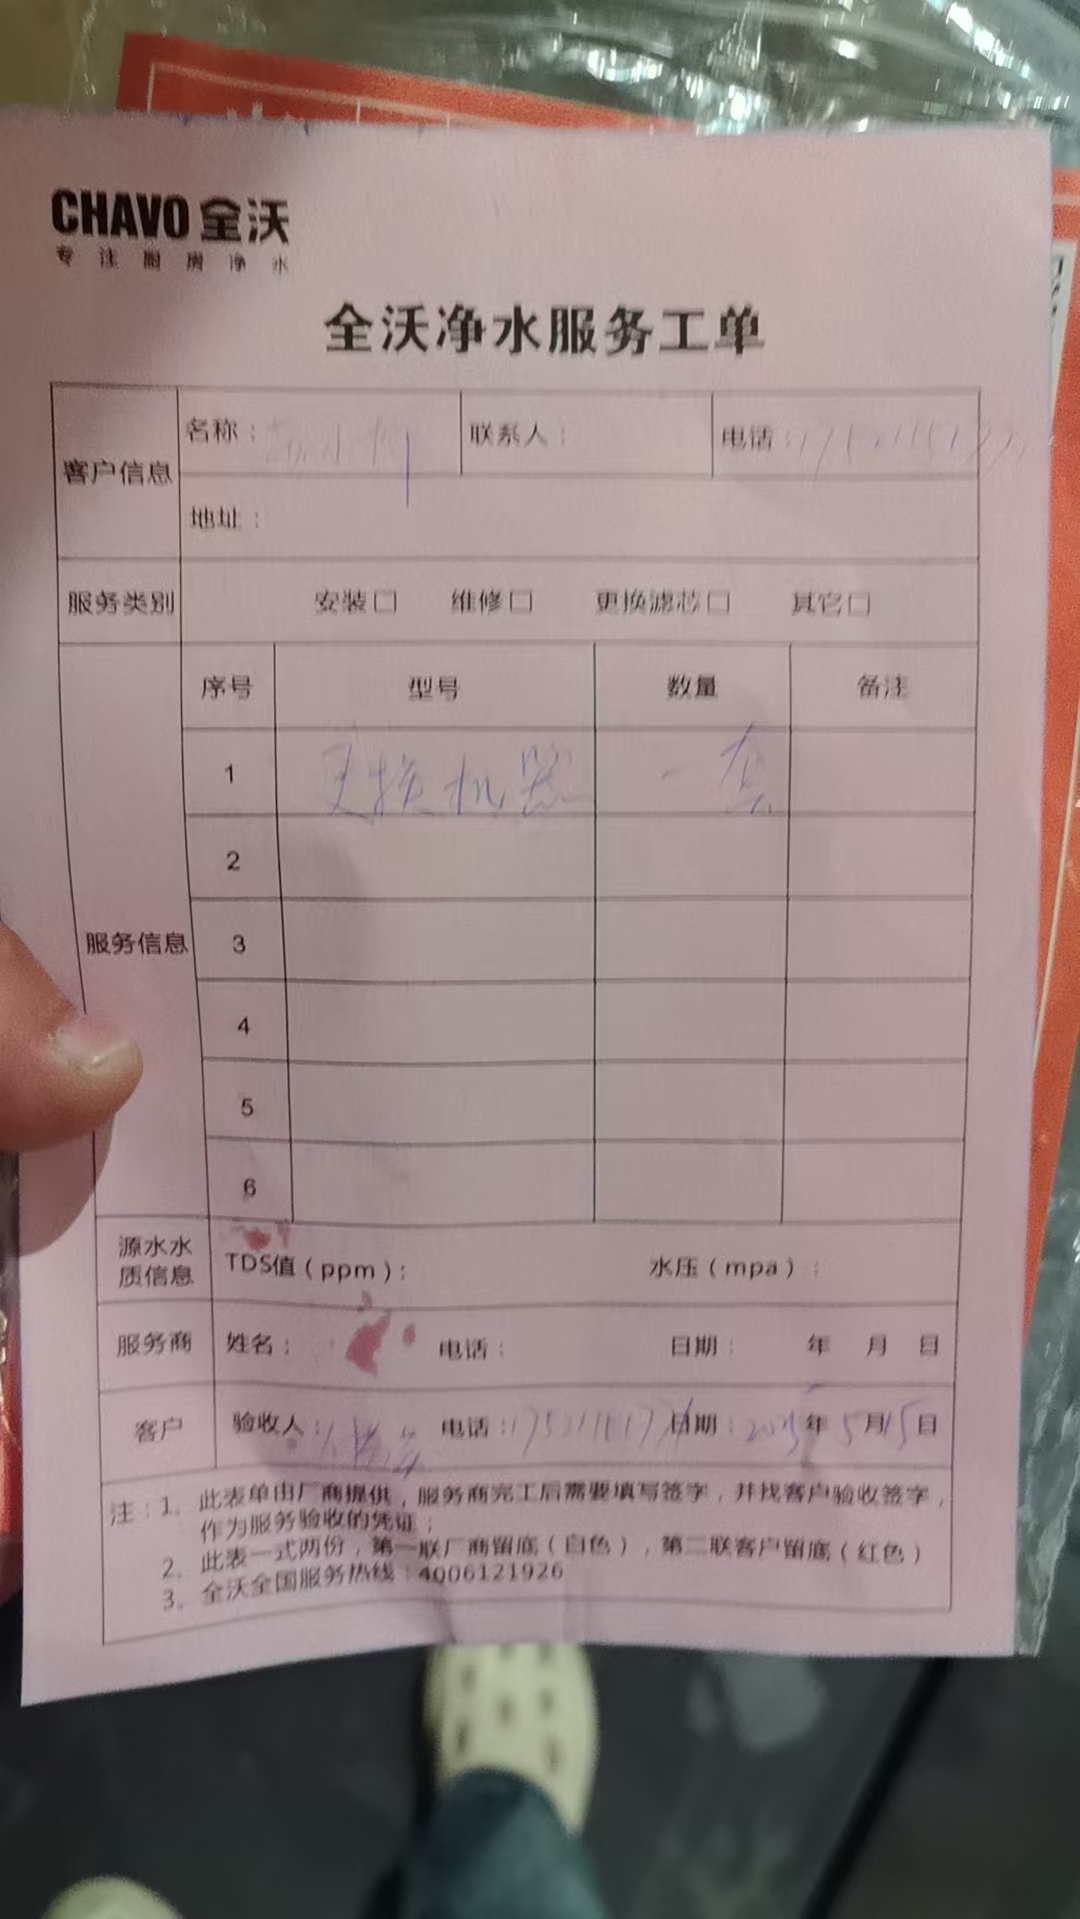 CHAVO 全沃
专注厨房净水
全沃净水服务工单
客户信息
名称：
联系人：
电话：
地址：
服务类别
安装□ 维修□ 更换滤芯□ 其它□
服务信息
序号 型号 数量 备注
1 更换机器 一套
2
3
4
5
6
源水水质信息
TDS值（ppm）： 水压（mpa）：
服务商
姓名： 电话： 日期： 年 月 日
客户
验收人： 电话： 日期： 年5月15日
注：1、此表单由厂商提供，服务商完工后需要填写签字，并找客户验收签字，
作为服务验收的凭证；
2、此表一式两份，第一联厂商留底（白色），第二联客户留底（红色）
3、全沃全国服务热线：4006121926